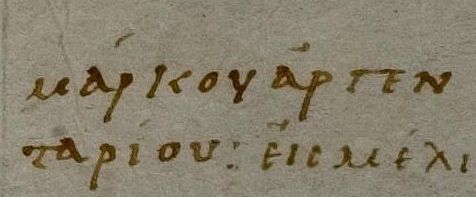 μάρκου ἀργεν
ταρίου: εἰς μέλι